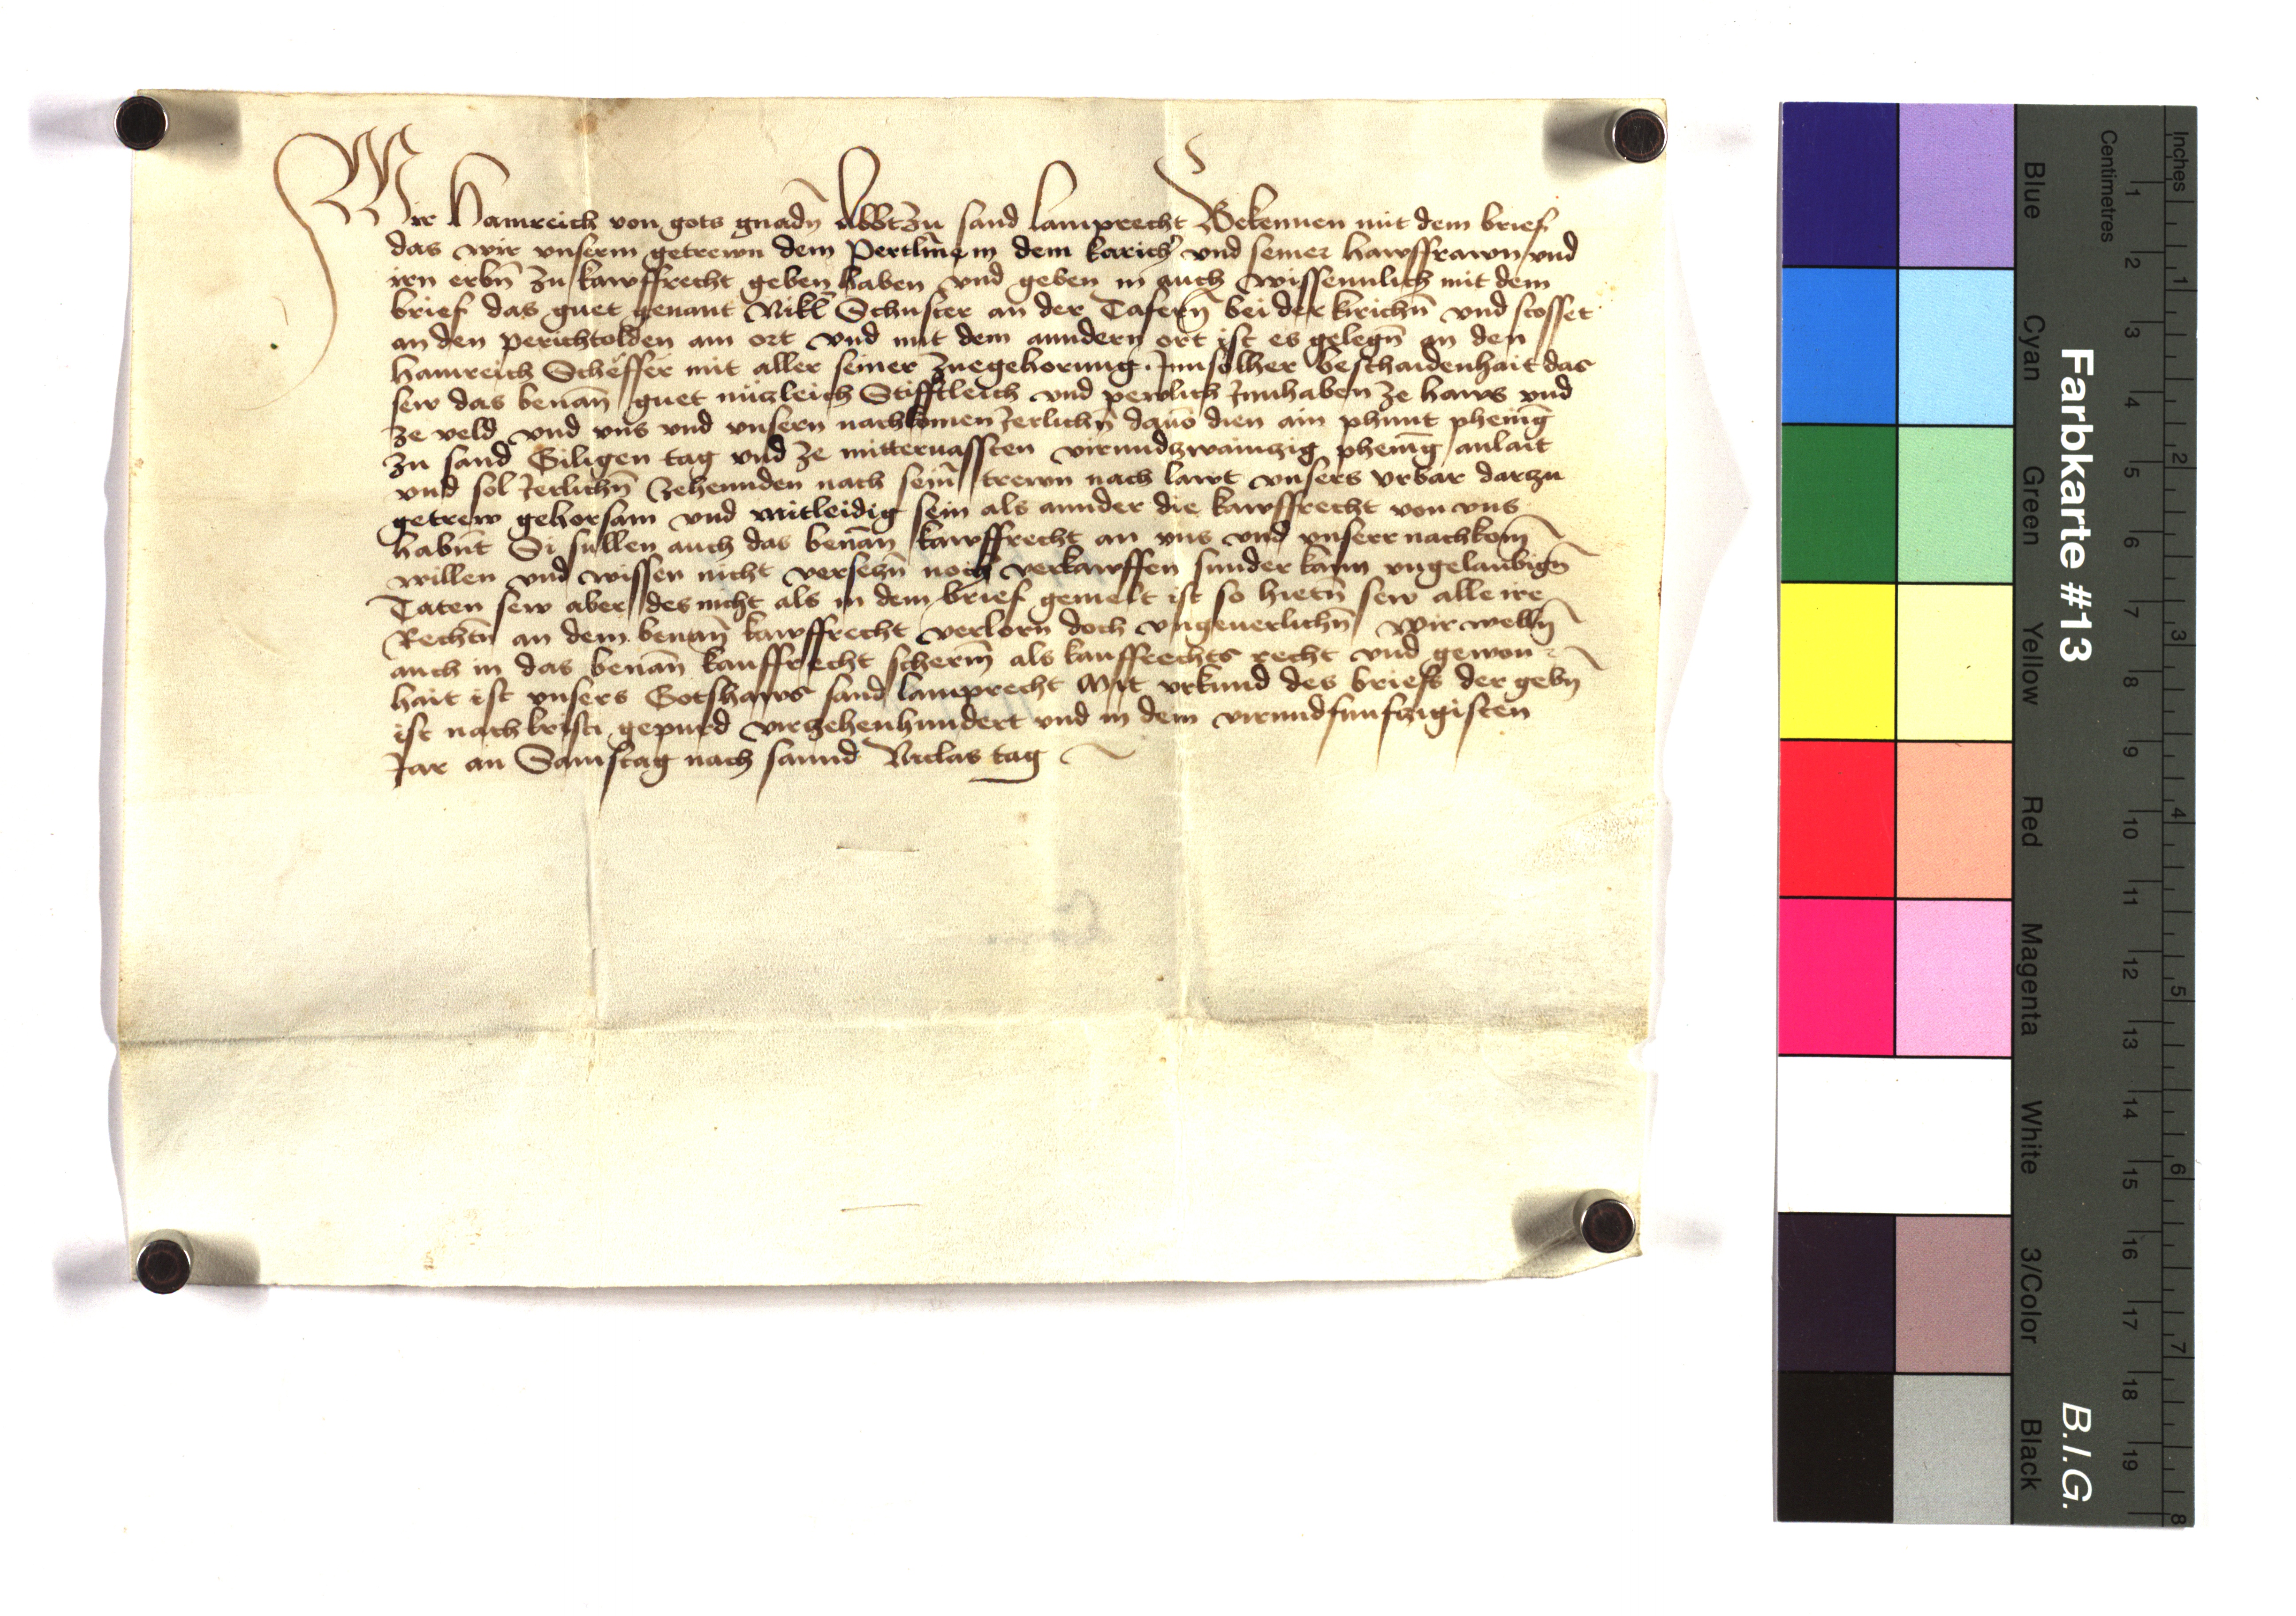 Wir Hainreich von gots gnadn̄ Abbt zu sand Lamprecht Bekennen mit dem brief
das wir vnserm getrewn dem Pertlme in dem karich vnd seiner hawsffrawn vnd
irn erbn̄ zu kawffrecht geben haben vnd geben in auch wissennlich mit dem
brief das guet genant Nikl Schuster an der Tafern̄ bei der kirichn̄ vnd stosset
an den perichtolden am ort vnd mit dem anndern ort ist es gelegn̄ an den
Hainreich Scheffer mit aller seiner zuegehorung. Inn solher beschaidenhait das
sew das benan̄ guet nüzleich Stifftleich vnd pewlich Innhaben ze haws vnd
ze veld vnd vns vnd vnsern nachkomen Jerlichn̄ dauō dien ain phunt phenīg
zu sand Giligen tag vnd ze mitteruassten virundzwainzig phenīg anlait
vnd sol Jerlichn̄ zehennden nach sein̄ trewn nach lawt vnsers vrbar darzu
getrew gehorsam vnd mitleidig sein als annder die kawffrecht von vns
habn̄t Si sullen auch das benan̄ kawffrecht an vns vnd vnserr nachkom̄
willen vnd wissen nicht versezn̄ noch verkawffen sunder kainn vngelaubign̄
Taten sew aber des nicht als in dem brief gemelt ist so hietn̄ sew alle ire
Rechtn̄ an dem benan̄ kawffrecht verlorn doch vngeuerlichn̄ Wir welln̄
auch in das benan̄ kauffrecht scherm̄ als kauffrechts recht vnd gewon
hait ist vnsers Gotshaws sand Lamprecht Mit vrkund des briefs der gebn̄
ist nach kristi gepurd virzehenhundert vnd in dem virundfunfczigisten
Jar an Samstag nach sannd Niclas tag
Farbkarte #13
B.I.G.
Inches
1
2
3
4
5
6
7
8
Centimetres
1
2
3
4
5
6
7
8
9
10
11
12
13
14
15
16
17
18
19
Blue
Cyan
Green
Yellow
Red
Magenta
White
3/Color
Black